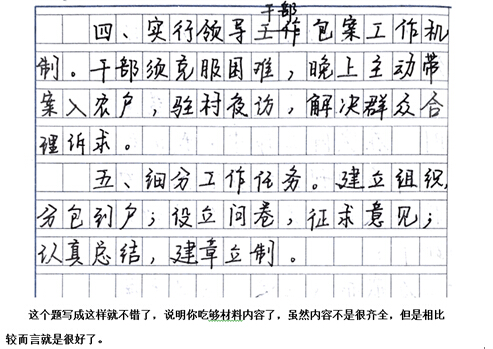 干部
四、实行领导工作包案工作机
制。干部须克服困难,晚上主动带
案入农户,驻村夜访,解决群众合
理诉求。
五、细分工作任务。建立组织,
分包到户;设立问卷,征求意见;
认真总结,建章立制。
这个题写成这样就不错了,说明你吃够材料内容了,虽然内容不是很齐全,但是相比
较而言就是很好了。